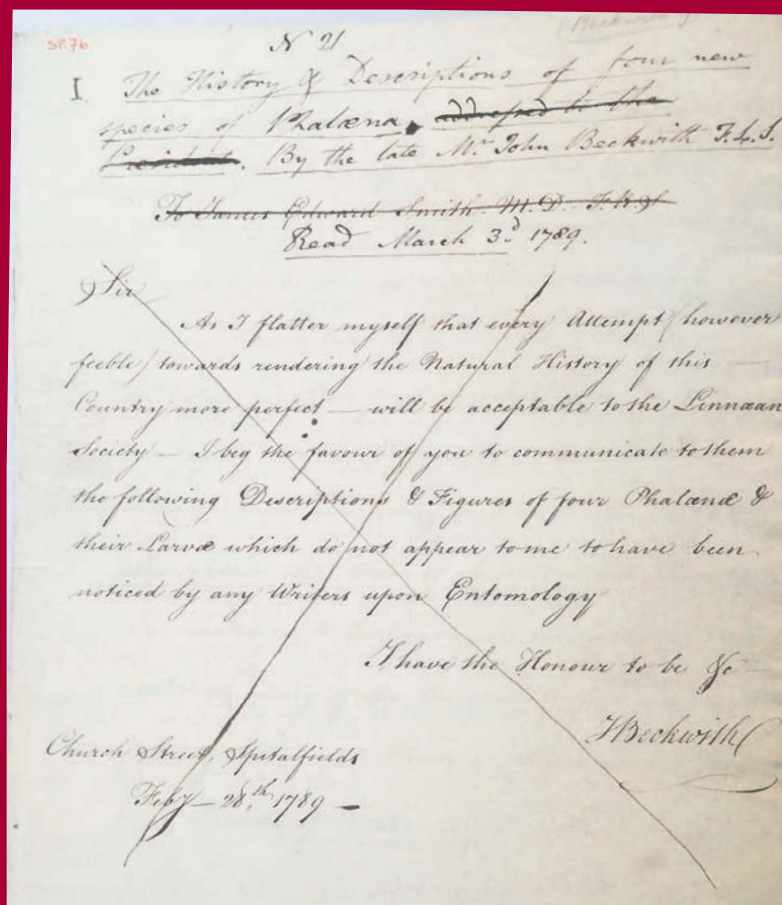 (Beckwith)
SP.76
N 21
I. The History & Descriptions of four new
species of Phalæna, addressed to the
President. By the late Mr. John Beckwith F.L.S.
To James Edward Smith. M.D. F.R.S
Read March 3d. 1789.
Sir
As I flatter myself that every Attempt (however
feeble) towards rendering the Natural History of this —
Country more perfect — will be acceptable to the Linnæan
Society — I beg the favour of you to communicate to them
the following Descriptions & Figures of four Phalænæ &
their Larvæ which do not appear to me to have been
noticed by any Writers upon Entomology
I have the Honour to be &c —
JBeckwith
Church Street, Spitalfields
Feby — 28th. 1789 —